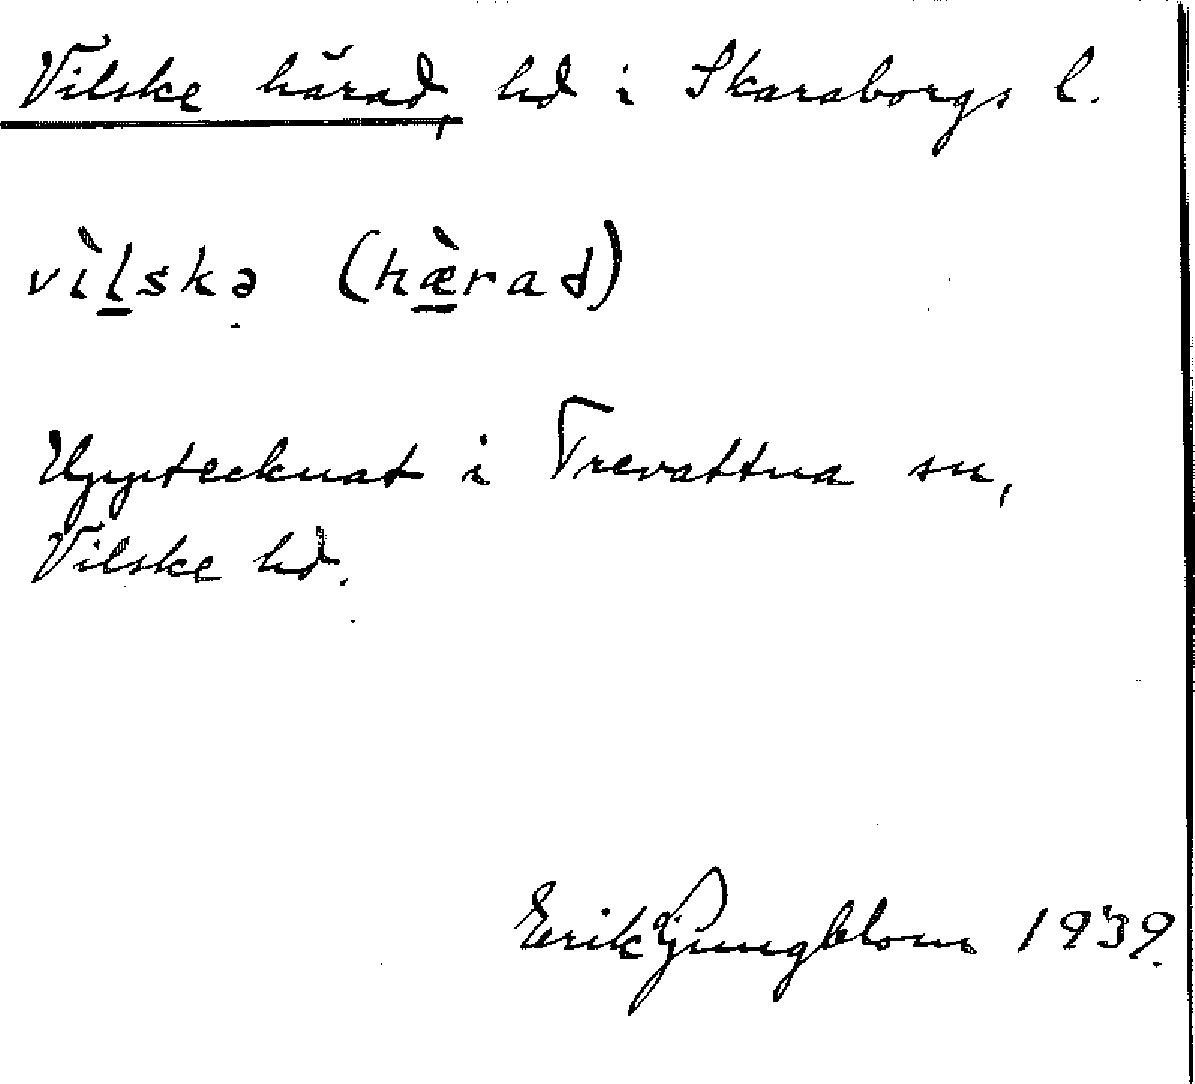 Vilske härad, hd i Skaraborgs l.
vìl̲skə (hæ̲̀rad)
Upptecknat i Trevattna sn,
Vilske hd.
Erik Ljungblom 1939.